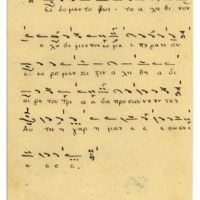 Ει δο μεν το φω ς το α λη θι νον
ε λα βο μεν πνευ μα ε που ρα νι ον
ε ευ ρο μεν πι στιν α λη θη α δι
αι ρε τον Τρι α α δα προσκυνουντες
Αυ τη γαρ η μας ε ε ε σωσε
ε ε ε.